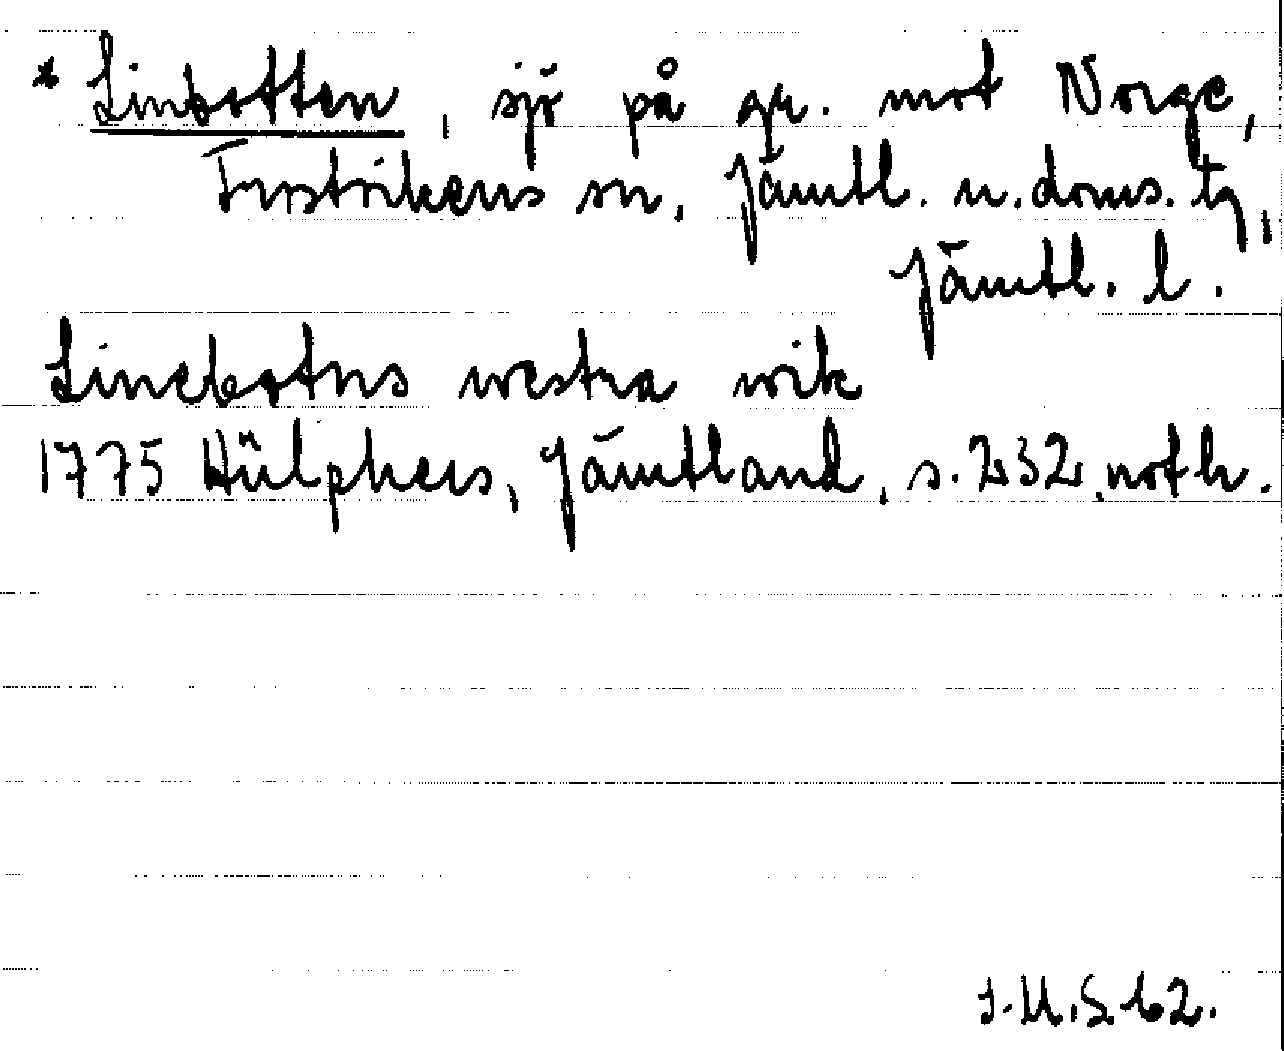 * Linbotten, sjö på gr. mot Norge,
Frostvikens sn, Jämtl. n. doms. tg,
Jämtl. l.
Linebotns westra wik
1775 Hülphers, Jämtland, s. 232, not h.
J.M.S. 62.